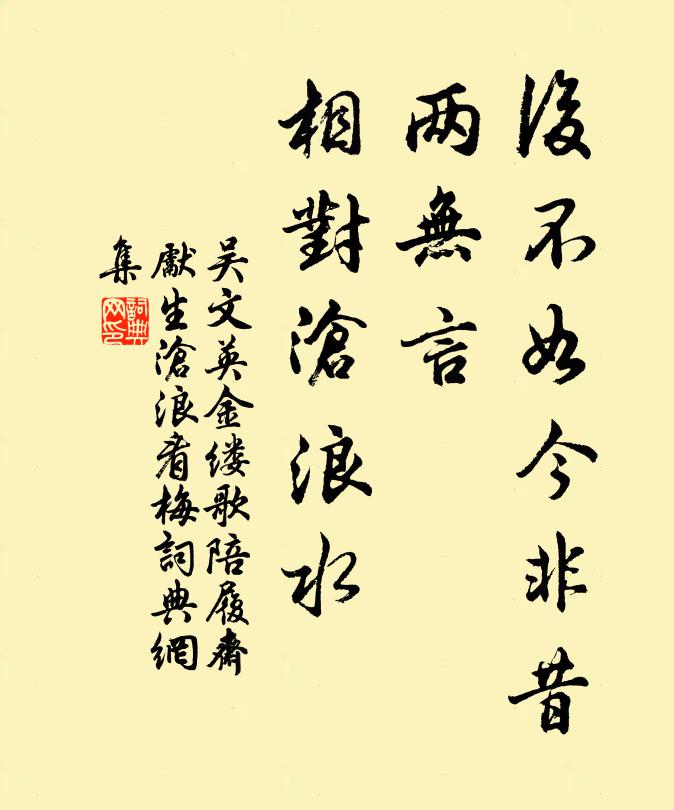 後不如今非昔
两無言
相對滄浪水
吴文英金缕歌陪履齋
獻生滄浪看梅詞典網
集
詞典
网印